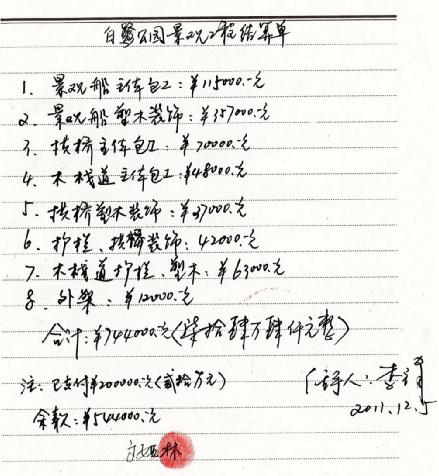 白鹭公园景观工程结算单
1. 景观船主体包工：¥115000.元
2. 景观船塑木装饰：¥357000.元
3. 拱桥主体包工：¥70000.元
4. 木栈道主体包工：¥48000.元
5. 拱桥塑木装饰：¥37000.元
6. 护栏、拱桥装饰：42000.元
7. 木栈道护栏、塑木：¥63000.元
8. 外架：¥12000.元
合计：¥744000.元(柒拾肆万肆仟元整)
注：已支付¥200000.元(贰拾万元)
人：李
余款：¥544000.元
2011.12.5
林